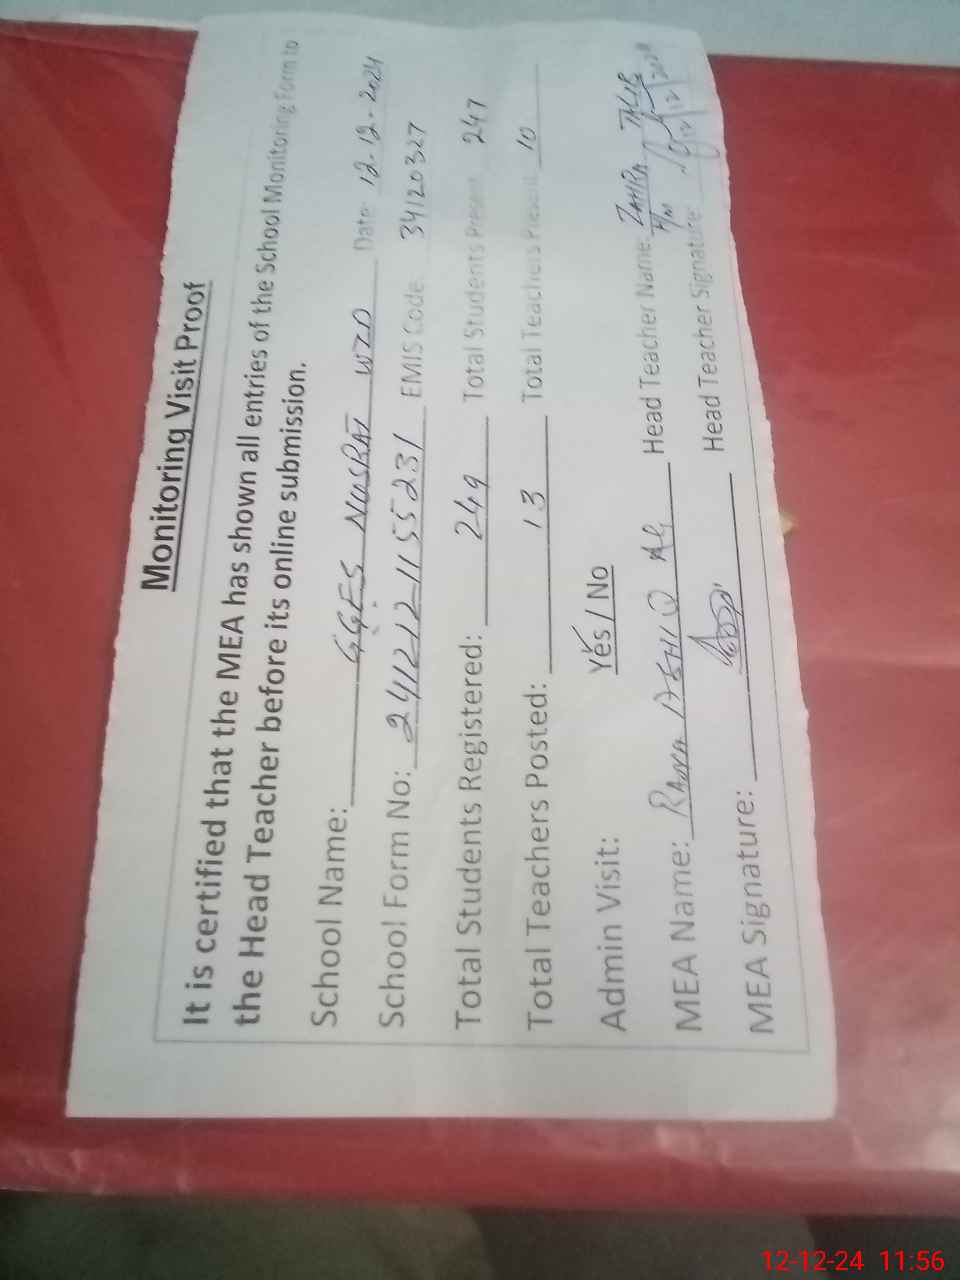 Monitoring Visit Proof
It is certified that the MEA has shown all entries of the School Monitoring Form to
the Head Teacher before its online submission.
School Name: GGES NUSRAT WZD Date: 12-12-2024
School Form No: 2412121155231 EMIS Code 34120327
Total Students Registered: 249 Total Students Present 247
Total Teachers Posted: 13 Total Teachers Present 10
Admin Visit: Yes / No
MEA Name: RANA ASHIQ Ali Head Teacher Name: ZAHRA TALIB
H/M
MEA Signature: Head Teacher Signature: 12/12/2024
12-12-24 11:56